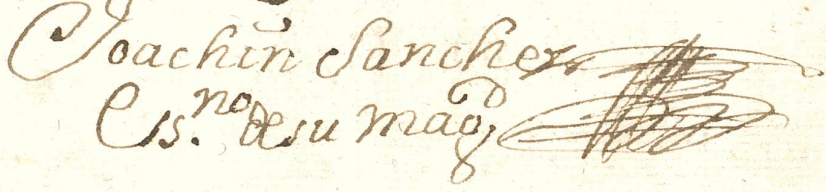 Joachin Sanchez
Ess.no de su Magd